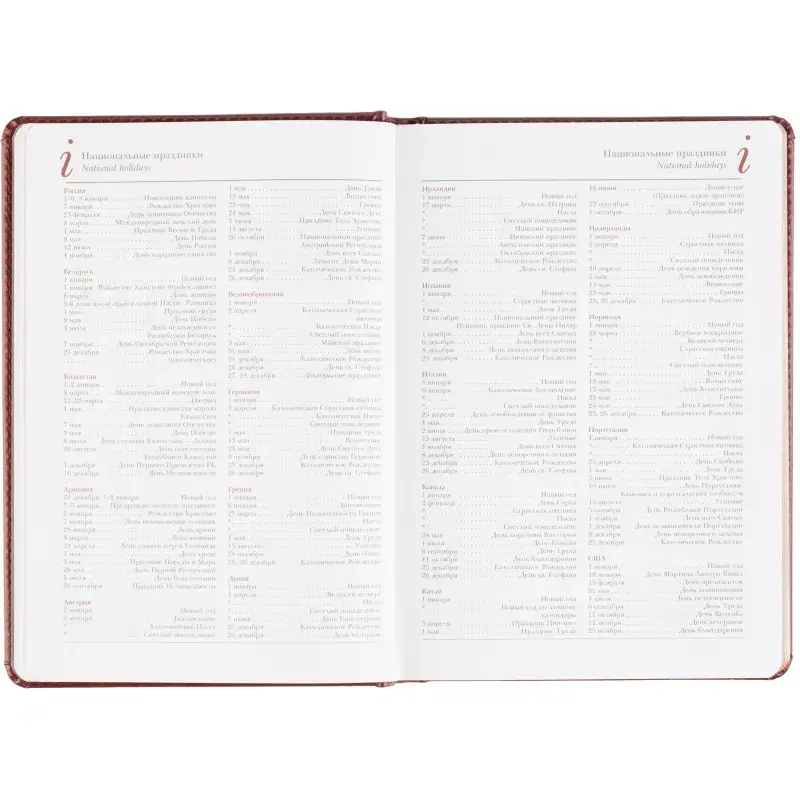 i
Национальные праздники
National holidays
Россия
1-6, 8 января Новогодние каникулы
7 января Рождество Христово
23 февраля День защитника Отечества
8 марта Международный женский день
1 мая Праздник Весны и Труда
9 мая День Победы
12 июня День России
4 ноября День народного единства
Беларусь
1 января Новый год
7 января Рождество Христово (православное)
8 марта День женщин
9-й день после православной Пасхи Радуница
1 мая Праздник труда
9 мая День Победы
3 июля День независимости
Республики Беларусь
7 ноября День Октябрьской Революции
25 декабря Рождество Христово
(католическое)
Казахстан
1-2 января Новый год
8 марта Международный женский день
21-23 марта Наурыз
1 мая Праздник единства народа
Казахстана
7 мая День защитника Отечества
9 мая День Победы
6 июля День столицы Казахстана Астаны
30 августа День конституции
Республики Казахстан
1 декабря День Первого Президента РК
16 декабря День Независимости
Армения
31 декабря, 1-2 января Новый год
3-5 января Предрождественские праздники
6 января Рождество
28 января День армии
8 марта День женщин
24 апреля День памяти жертв геноцида
1 мая День труда
9 мая Праздник Победы и Мира
28 мая День Первой Республики
5 июля День Конституции
21 сентября Праздник Независимости
Австрия
1 января Новый год
6 января Богоявление
* Католическая Пасха
* Светлый понедельник
1 мая День Труда
13 мая Вознесение
23 мая Троица
24 мая День Святого Духа
3 июня Праздник Тела Христова
15 августа Успение
26 октября Национальный праздник
Австрийской Республики
1 ноября День всех Святых
8 декабря Зачатие Девы Марии
25 декабря Католическое Рождество
26 декабря День св. Стефана
Великобритания
1 января Новый год
2 апреля Католическая Страстная
пятница
* Католическая Пасха
* Светлый понедельник
3 мая Майский праздник
31 мая День весны
25 декабря Католическое Рождество
26 декабря День св. Стефана
27, 28 декабря Декабрьские праздники
Германия
1 января Новый год
2 апреля Католическая Страстная пятница
* Католическая Пасха
* Светлый понедельник
1 мая Праздник Труда
13 мая Вознесение
23 мая День Святого Духа
3 октября День единства Германии
25 декабря Католическое Рождество
26 декабря День св. Стефана
Греция
1 января Новый год
6 января Богоявление
25 марта День Независимости Греции
* Пасха
* Светлый понедельник
1 мая День Труда
15 августа Успение
28 октября День «Охи»
25, 26 декабря Католическое Рождество
Дания
1 января Новый год
1 апреля Великий четверг
* Пасха
* Светлый понедельник
5 июня День Конституции
25 декабря Католическое Рождество
26 декабря День подарков
Национальные праздники
National holidays
i
Ирландия
1 января Новый год
17 марта День св. Патрика
* Пасха
* Светлый понедельник
* Майский праздник
7 июня Июньский праздник
* Августовский праздник
* Октябрьский праздник
25 декабря Католическое Рождество
26 декабря День св. Стефана
Испания
1 января Новый год
* Страстная пятница
1 мая День Труда
12 октября Национальный праздник
Испании, праздник Св. Девы Пилар
1 ноября День всех Святых
6 декабря День Конституции
8 декабря День непорочного зачатия
25 декабря Католическое Рождество
Италия
1 января Новый год
6 января Католическое богоявление
* Пасха
* Светлый понедельник
25 апреля День освобождения от фашизма
1 мая День Труда
2 июня День провозглашения Республики
15 августа Успение
1 ноября День всех Святых
8 декабря День непорочного зачатия
25 декабря Католическое Рождество
26 декабря День св. Стефана
Канада
1 января Новый год
2 апреля Страстная пятница
* Пасха
* Светлый понедельник
24 мая День королевы Виктории
1 июля День Канады
6 сентября День Труда
11 октября День благодарения
25 декабря Католическое Рождество
26 декабря День св. Стефана
Китай
1 января Новый год
* Новый год по лунному
календарю
5 апреля Праздник Цинмин
1 мая Праздник Труда
16 июня Дуань-у-цзе
(Праздник лодок-драконов)
22 сентября Праздник луны
1 октября День образования КНР
Нидерланды
1 января Новый год
2 апреля Страстная пятница
* Пасха
* Светлый понедельник
30 апреля День рождения королевы
5 мая День освобождения
13 мая Вознесение
23 мая Троица
25, 26 декабря Католическое Рождество
Норвегия
1 января Новый год
28 марта Вербное воскресенье
* Великий четверг
* Страстная пятница
* Пасха
* Светлый понедельник
1 мая День Труда
13 мая Вознесение
17 мая День Конституции
23 мая Троица
24 мая День Святого Духа
25, 26 декабря Католическое Рождество
Португалия
1 января Новый год
* Католическая Страстная пятница
* Пасха
25 апреля День Свободы
1 мая День Труда
3 июня Праздник Тела Христова
10 июня День Португалии,
Камоэнса и португальских сообществ
15 августа Успение
5 октября День Республики Португалии
1 ноября День всех Святых
1 декабря День независимости Португалии
8 декабря День непорочного зачатия
25 декабря Католическое Рождество
США
1 января Новый год
18 января День Мартина Лютера Кинга
15 февраля День президентов
31 мая День поминовения
4 июля День независимости
6 сентября День Труда
11 октября День Колумба
11 ноября День ветеранов
25 ноября День благодарения